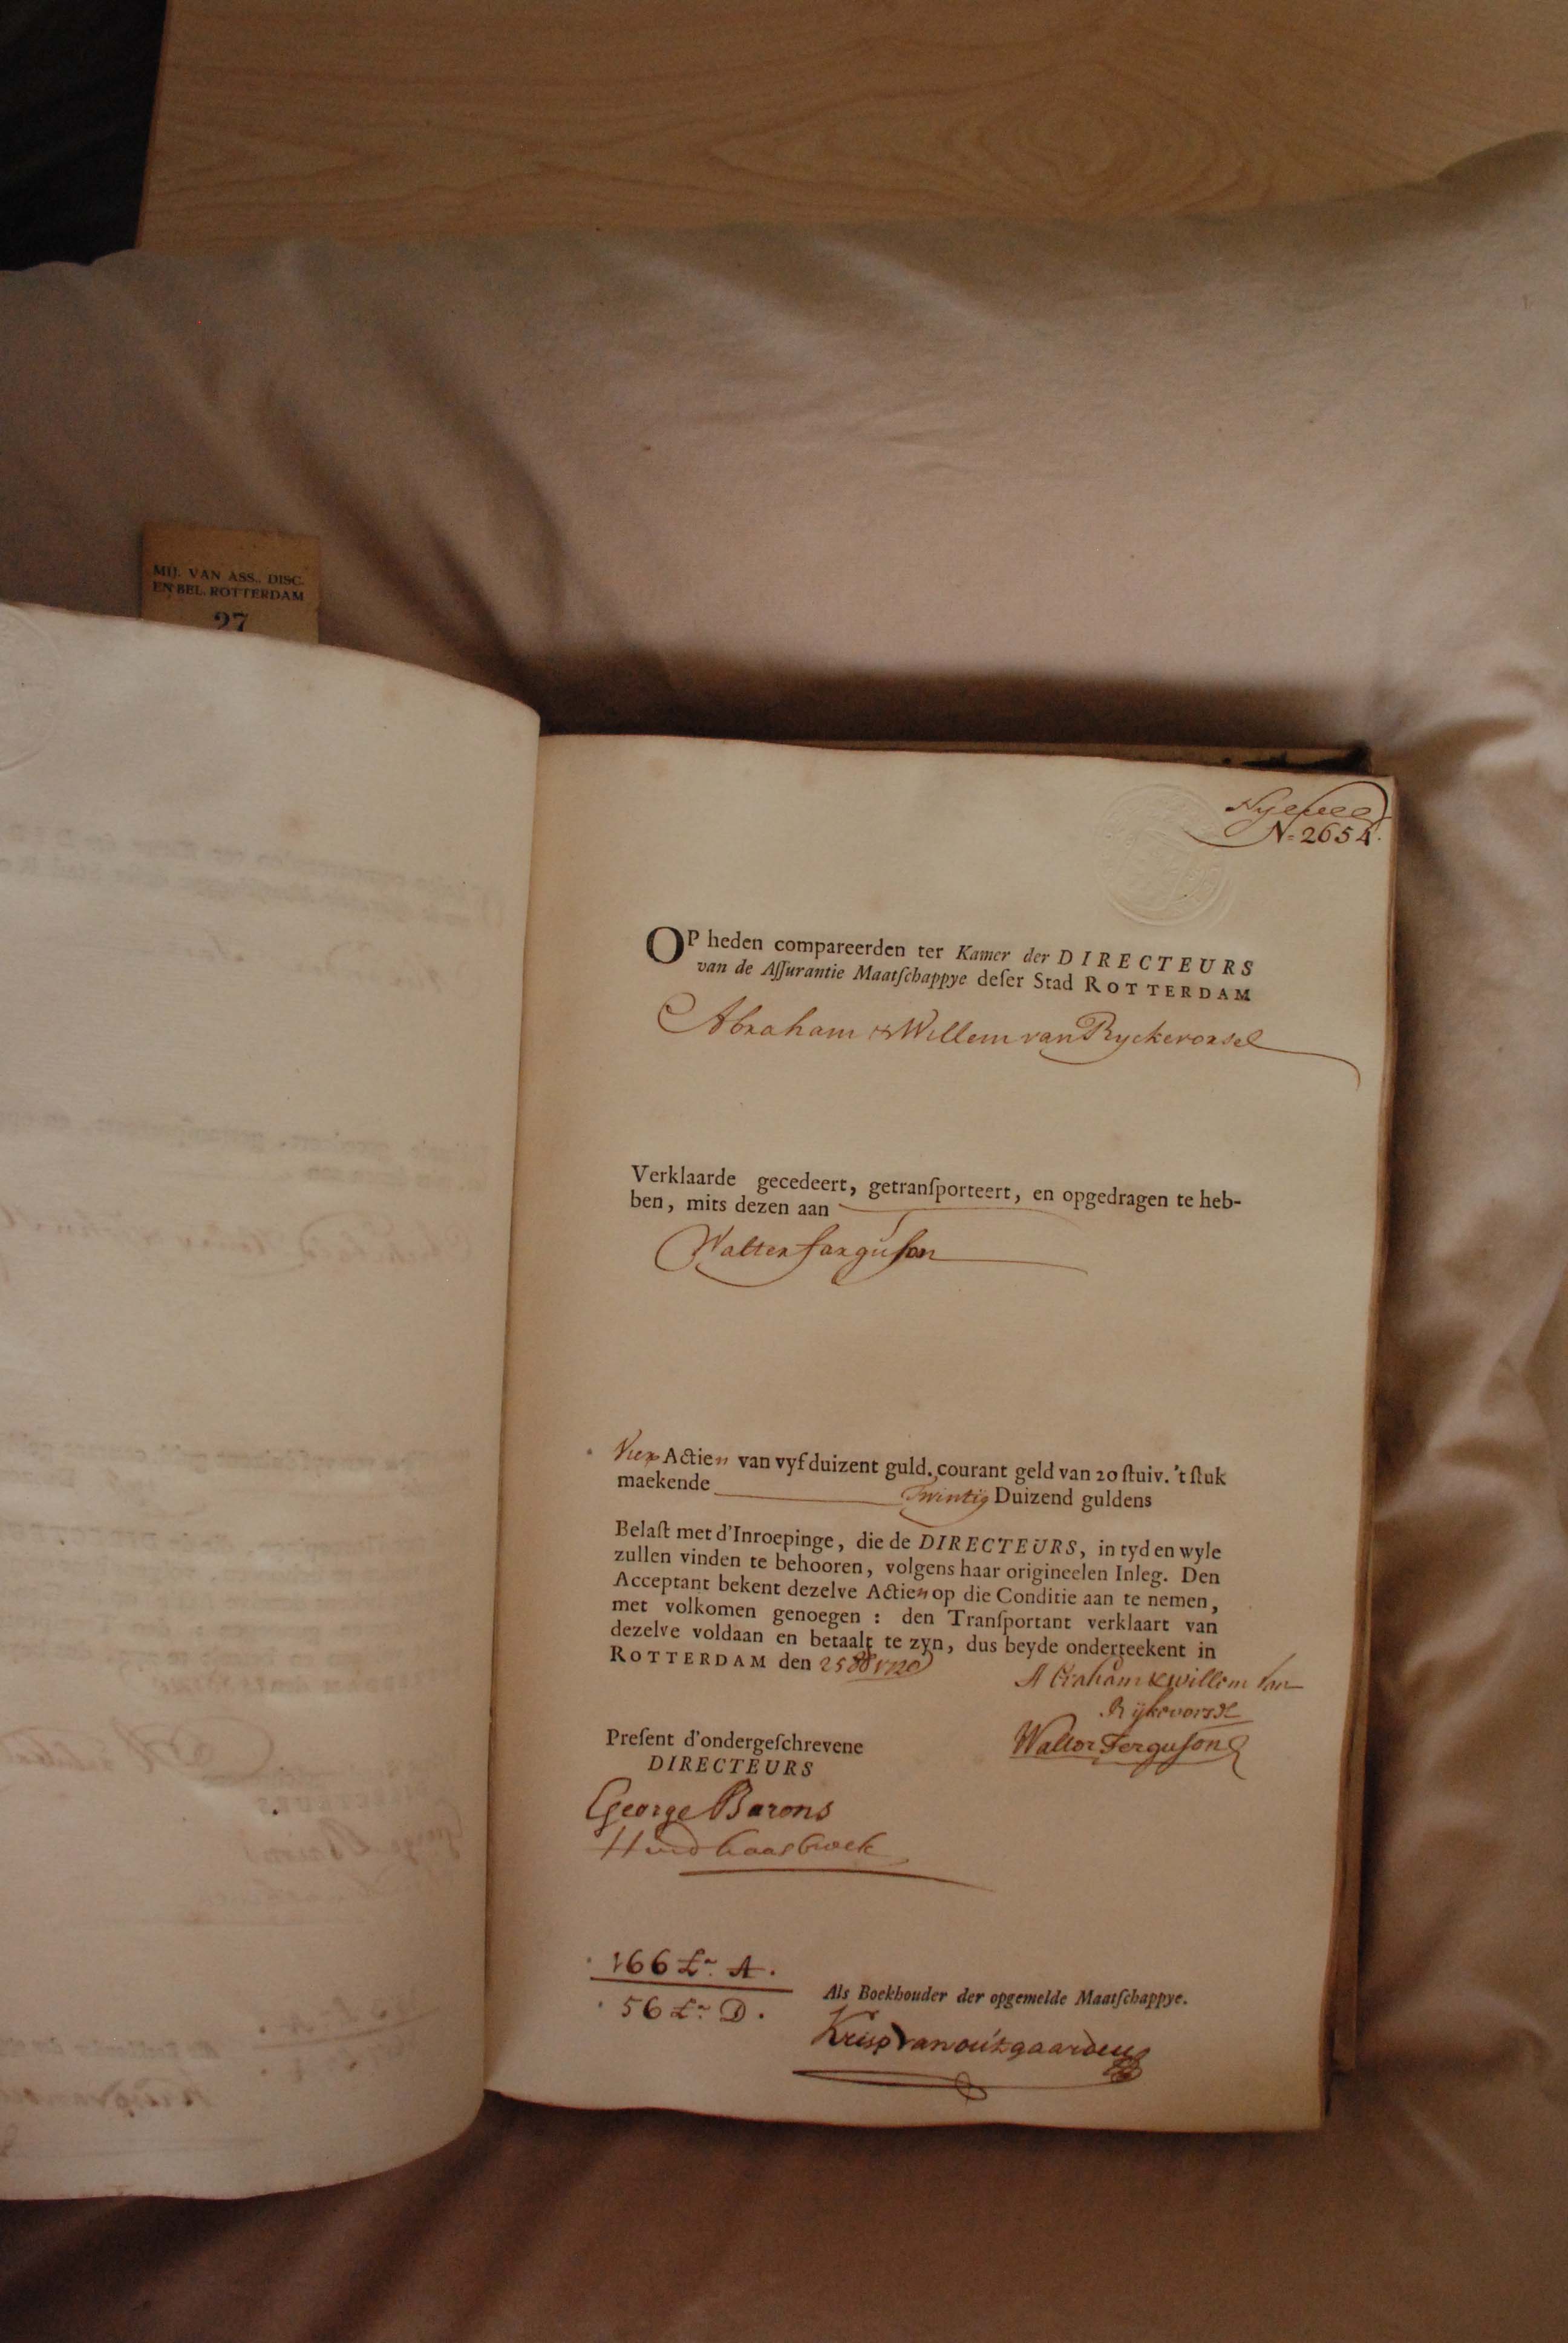 MIJ. VAN ASS., DISC.
EN BEL. ROTTERDAM
27
N=2654.
OP heden compareerden ter Kamer der DIRECTEURS
van de Aſſurantie Maatſchappye deſer Stad ROTTERDAM
Abraham & Willem van Ryckevorsel
Verklaarde gecedeert, getranſporteert, en opgedragen te heb-
ben, mits dezen aan
Walter farguſon
Vier Actien van vyf duizent guld. courant geld van 20 ſtuiv. 't ſtuk
maekende Twintig Duizend guldens
Belaſt met d'Inroepinge, die de DIRECTEURS, in tyd en wyle
zullen vinden te behooren, volgens haar origineelen Inleg. Den
Acceptant bekent dezelve Actien op die Conditie aan te nemen,
met volkomen genoegen : den Tranſportant verklaart van
dezelve voldaan en betaalt te zyn, dus beyde onderteekent in
ROTTERDAM den 25
Abraham & willem van
Rykevorsel
Walter Ferguſon
Preſent d'ondergeſchrevene
DIRECTEURS
George Barons
166 Lr. A.
56 Lr. D.
Als Boekhouder der opgemelde Maatſchappye.
Krisp van outgaarden